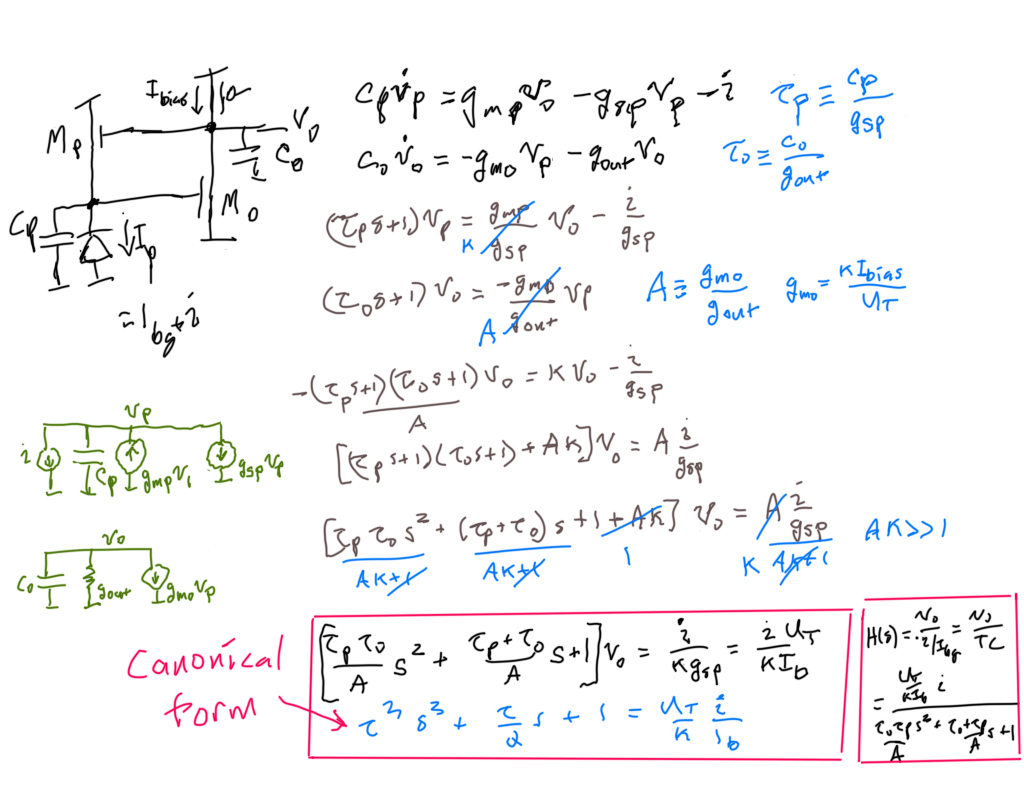 I_bias
V_o
M_p
C_o
M_o
C_p
I_p
= I_bg + i
C_p v̇_p = g_mp v_o − g_sp v_p − i
τ_p ≡ C_p / g_sp
C_o v̇_o = −g_mo v_p − g_out v_o
τ_o ≡ C_o / g_out
(τ_p s+1) v_p = g_mp / g_sp v_o − i / g_sp
κ
(τ_o s+1) v_o = −g_mo / g_out v_p
A
A ≡ g_mo / g_out
g_mo = κ I_bias / U_T
−(τ_p s+1)(τ_o s+1) / A v_o = κ v_o − i / g_sp
[(τ_p s+1)(τ_o s+1) + Aκ] v_o = A i / g_sp
[τ_p τ_o s² + (τ_p + τ_o) s + 1 + Aκ] v_o = A i / g_sp
Aκ+1
Aκ+1
1
κ Aκ+1
Aκ >> 1
v_p
i
C_p
g_mp v_i
g_sp v_p
v_o
C_o
g_out
g_mo v_p
Canonical
form
[τ_p τ_o / A s² + τ_p + τ_o / A s + 1] v_o = i / κ g_sp = i U_T / κ I_b
τ² s² + τ / Q s + 1 = U_T / κ i / I_b
H(s) = v_o / i/I_bg = v_o / TC
= U_T / κI_b i / τ_o τ_p / A s² + τ_o + τ_p / A s + 1